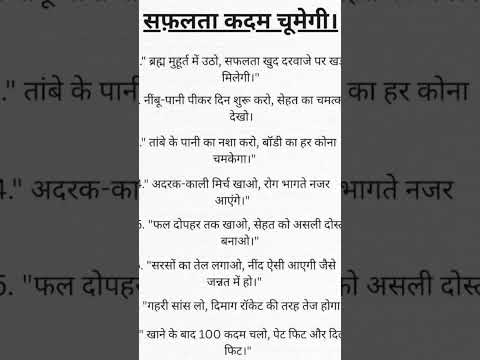 सफ़लता कदम चूमेगी।
." ब्रह्म मुहूर्त में उठो, सफलता खुद दरवाजे पर
मिलेगी।"
." तांबे के पानी
का हर कोना
. नींबू-पानी पीकर दिन शुरू करो, सेहत का
देखो।
." तांबे के पानी का नशा करो, बॉडी का हर कोना
चमकेगा।"
4." अदरक-का
भागते नजर
4." अदरक-काली मिर्च खाओ, रोग भागते नजर
आएंगे।"
5. "फल दोपहर तक खाओ, सेहत को असली दोस्त
बनाओ।"
. "सरसों का तेल लगाओ, नींद ऐसी आएगी जैसे
जन्नत में हो।"
5. "फल दोपहर
को असली दोस्त
"गहरी सांस लो, दिमाग रॉकेट की तरह तेज होगा
" खाने के बाद 100 कदम चलो, पेट फिट और
फिट।"